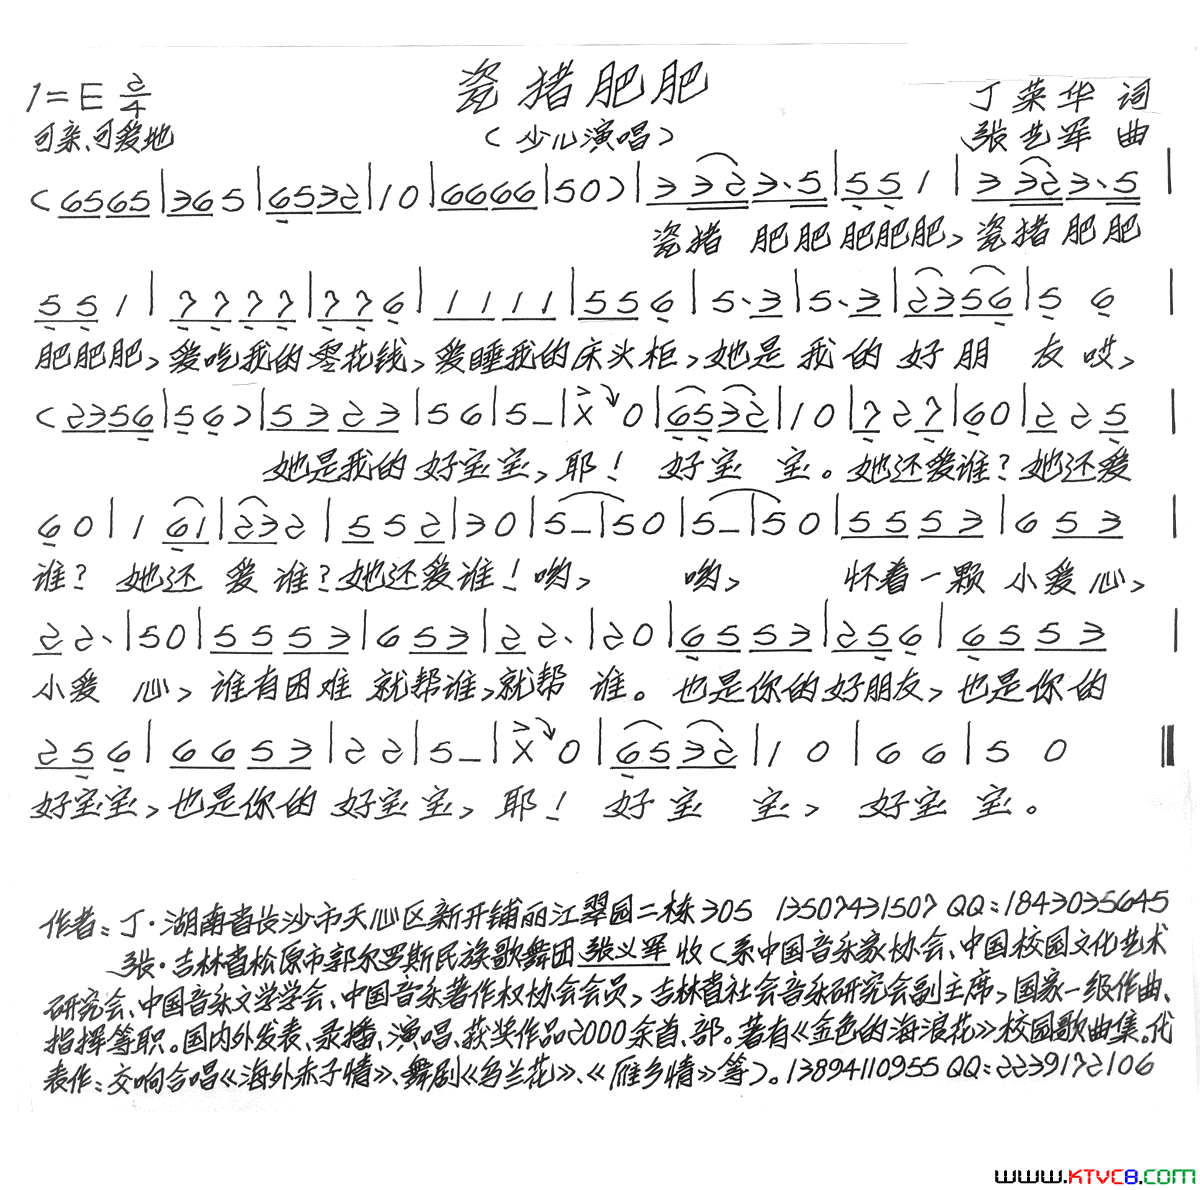 瓷猪肥肥
1=E 2/4
丁荣华 词
可亲、可爱地
(少儿演唱)
张艺军 曲
(6565|365|6532|10|6666|50)|3323·5|551|3323·5|
瓷猪 肥肥肥肥肥,瓷猪肥肥
551|7777|776|1111|556|5·3|5·3|2356|5 6|
肥肥肥,爱吃我的零花钱,爱睡我的床头柜,她是我的好朋 友哎,
(2356|56)|5323|56|5-|X 0|6532|10|727|60|225|
她是我的好宝宝,耶! 好宝 宝。她还爱谁?她还爱
60|1 61|232|552|30|5-|50|5-|50|5553|6 53|
谁? 她还 爱谁?她还爱谁!哟, 哟, 怀着一颗 小爱心,
22·|50|5553|653|22·|20|6553|256|6553|
小爱 心, 谁有困难 就帮谁,就帮 谁。 也是你的好朋友,也是你的
256|6653|22|5-|X 0|6532|1 0|66|5 0‖
好宝宝,也是你的 好宝宝,耶! 好宝 宝, 好宝 宝。
作者:丁·湖南省长沙市天心区新开铺丽江翠园二栋305 13507431507 QQ:1843035645
张·吉林省松原市郭尔罗斯民族歌舞团张义军收(系中国音乐家协会、中国校园文化艺术
研究会、中国音乐文学学会、中国音乐著作权协会会员,吉林省社会音乐研究会副主席,国家一级作曲、
指挥等职。国内外发表、录播、演唱、获奖作品2000余首、部。著有《金色的海浪花》校园歌曲集。代
表作:交响合唱《海外赤子情》、舞剧《乌兰花》、《雁乡情》等)。13894110955 QQ:2239172106
www.KTVC8.COM